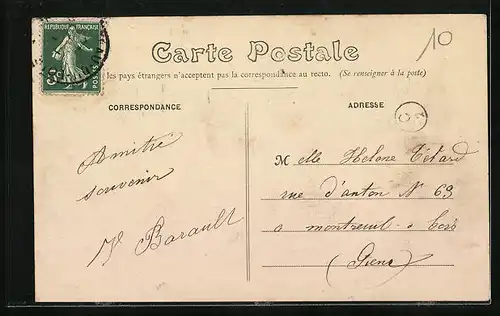 REPUBLIQUE FRANÇAISE
10
Carte Postale
les pays étrangers n'acceptent pas la correspondance au recto. (Se renseigner à la poste)
CORRESPONDANCE
ADRESSE
Amitié
souvenir
Barault
Melle Helene Tétard
rue d'anton N° 63
a montreuil